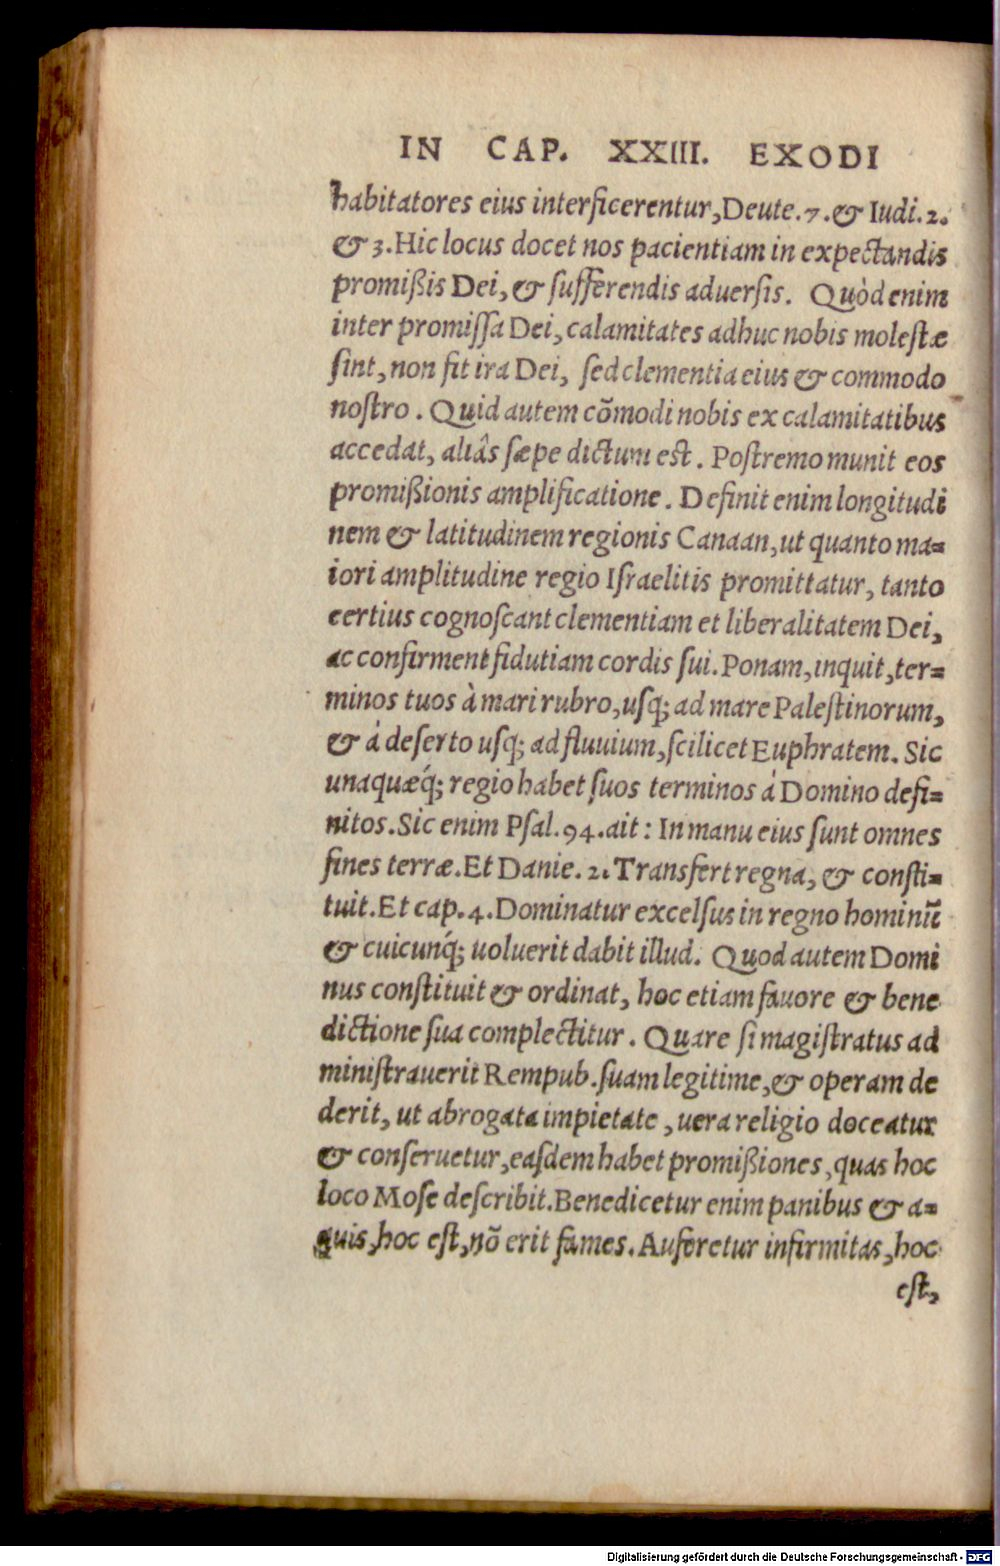 IN CAP. XXIII. EXODI
habitatores eius interficerentur, Deute. 7. & Iudi. 2.
& 3. Hic locus docet nos pacientiam in expectandis
promißis Dei, & ſufferendis aduerſis. Quòd enim
inter promiſſa Dei, calamitates adhuc nobis moleſtæ
ſint, non fit ira Dei, ſed clementia eius & commodo
noſtro. Quid autem cõmodi nobis ex calamitatibus
accedat, aliâs ſæpe dictum est. Poſtremo munit eos
promißionis amplificatione. Definit enim longitudi
nem & latitudinem regionis Canaan, ut quanto ma=
iori amplitudine regio Iſraelitis promittatur, tanto
certius cognoſcant clementiam et liberalitatem Dei,
ac confirment fidutiam cordis ſui. Ponam, inquit, ter=
minos tuos à mari rubro, uſq; ad mare Paleſtinorum,
& á deſerto uſq; ad fluuium, ſcilicet Euphratem. Sic
unaquæq́; regio habet ſuos terminos á Domino defi=
nitos. Sic enim Pſal. 94. ait: In manu eius ſunt omnes
fines terræ. Et Danie. 2. Transfert regna, & conſti=
tuit. Et cap. 4. Dominatur excelſus in regno hominũ
& cuicunq́; uoluerit dabit illud. Quod autem Domi
nus conſtituit & ordinat, hoc etiam fauore & bene
dictione ſua complectitur. Quare ſi magiſtratus ad
miniſtrauerit Rempub. ſuam legitime, & operam de
derit, ut abrogata impietate, uera religio doceatur
& conſeruetur, eaſdem habet promißiones, quas hoc
loco Moſe deſcribit. Benedicetur enim panibus & a=
quis, hoc est, nõ erit fames. Auferetur infirmitas, hoc
eſt,
Digitalisierung gefördert durch die Deutsche Forschungsgemeinschaft - DFG